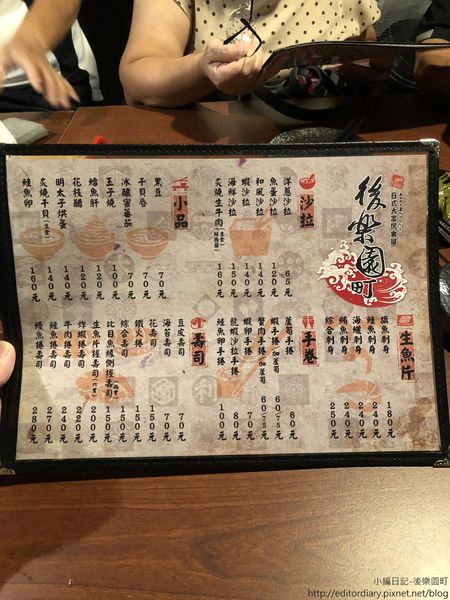 後樂園町
日式大眾居食屋
沙拉
洋蔥沙拉 65元
魚蛋沙拉 120元
和風沙拉 140元
蝦沙拉 140元
海鮮沙拉 150元
炙燒生牛肉 160元
小品
黑豆 70元
干貝唇 70元
冰釀蜜番茄 100元
玉子燒 120元
鱈魚肝 120元
花枝醋 120元
明太子烘蛋 140元
炙燒干貝(生食) 140元
鮭魚卵 160元
生魚片
旗魚刺身 180元
鮭魚刺身 240元
海鱺刺身 240元
鮪魚刺身 250元
綜合刺身 250元
手卷
蘆筍手捲 60元
蝦手捲/加蘆筍 60/75元
蟹肉手捲/加蘆筍 60/75元
蝦卵手捲 70元
龍蝦沙拉手捲 80元
鮭魚卵手捲 100元
壽司
豆皮壽司 70元
海苔壽司 70元
花壽司 150元
鐵火捲 150元
綜合壽司 150元
比目魚緣側握壽司
生魚片握壽司(六貫) 200元
炸蝦捲壽司 220元
牛肉捲壽司 240元
鮭魚捲壽司 270元
鰻魚捲壽司 280元
小編日記-後樂園町
http://editordiary.pixnet.net/blog